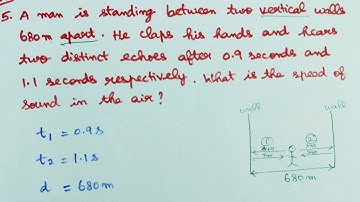 5. A man is standing between two vertical walls
680m apart. He claps his hands and hears
two distinct echoes after 0.9 seconds and
1.1 seconds respectively. What is the speed of
sound in the air?
t₁ = 0.9s
t₂ = 1.1s
d = 680m
wall wall
1 2
680m